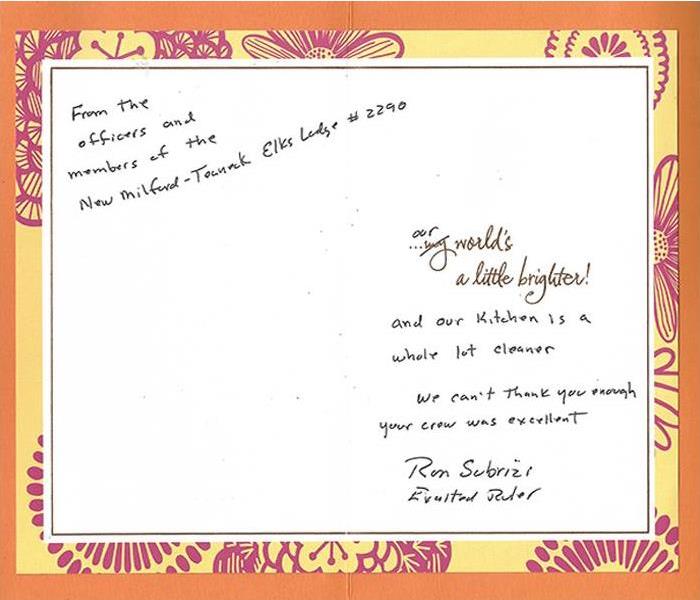 From the
officers and
members of the
New Milford-Teaneck Elks Lodge # 2290
our
...my world's
a little brighter!
and our Kitchen is a
whole lot cleaner
We can't Thank you enough
your crew was excellent
Ron Subrizi
Exalted Ruler